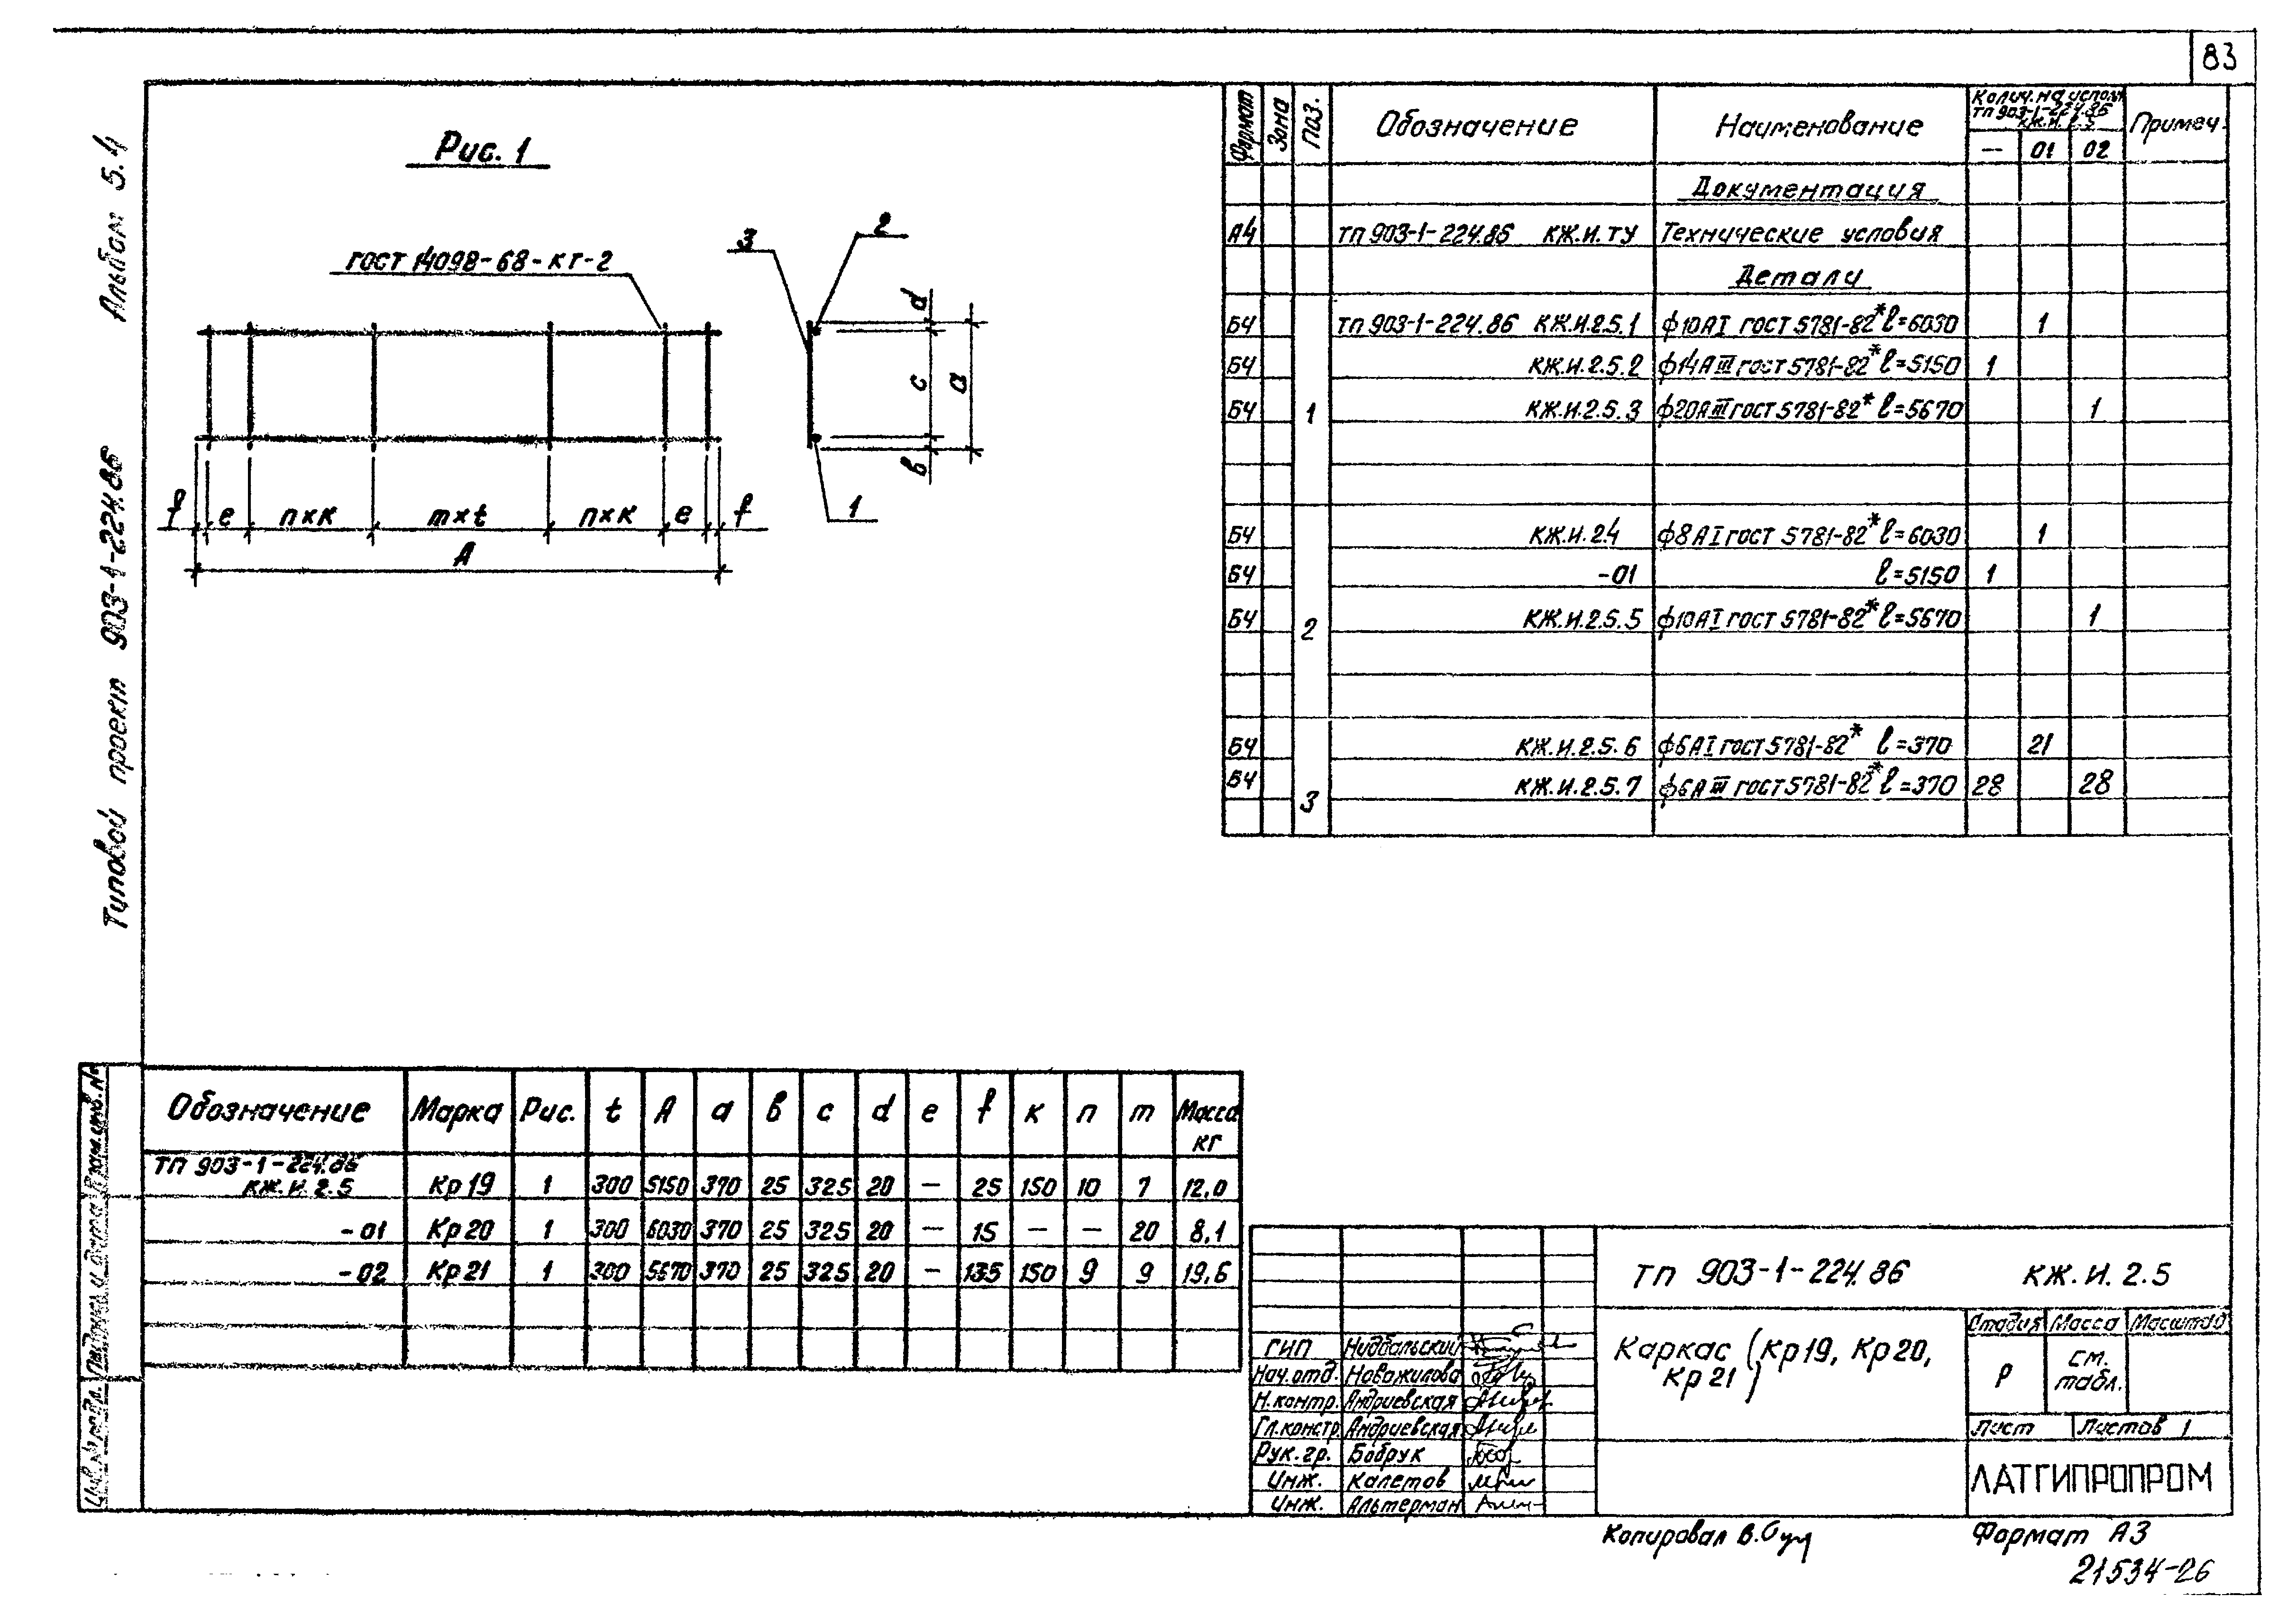 83
Альбом 5.4
Типовой проект 903-1-224.86
Рис. 1
ГОСТ 14098-68-КТ-2
3
2
1
d
c
a
в
f e п×к m×t п×к e f
А
Формат Зона Поз. Обозначение Наименование Колич. на исполн. Примеч.
ТП 903-1-224.86
КЖ.И.2.5
— 01 02
Документация
А4 ТП 903-1-224.86 КЖ.И.ТУ Технические условия
Детали
БЧ ТП 903-1-224.86 КЖ.И.2.5.1 ф10АI ГОСТ 5781-82* ℓ=6030 1
БЧ КЖ.И.2.5.2 ф14АIII ГОСТ 5781-82* ℓ=5150 1
БЧ 1 КЖ.И.2.5.3 ф20АIII ГОСТ 5781-82* ℓ=5670 1
БЧ КЖ.И.2.4 ф8АI ГОСТ 5781-82* ℓ=6030 1
БЧ -01 ℓ=5150 1
БЧ 2 КЖ.И.2.5.5 ф10АI ГОСТ 5781-82* ℓ=5670 1
БЧ КЖ.И.2.5.6 ф6АI ГОСТ 5781-82* ℓ=370 21
БЧ 3 КЖ.И.2.5.7 ф6АIII ГОСТ 5781-82* ℓ=370 28 28
Обозначение Марка Рис. t А а в с d e f к п m Масса кг
ТП 903-1-224.86
КЖ.И.2.5 Кр19 1 300 5150 370 25 325 20 — 25 150 10 7 12,0
-01 Кр20 1 300 6030 370 25 325 20 — 15 — — 20 8,1
-02 Кр21 1 300 5670 370 25 325 20 — 135 150 9 9 19,6
Взам.инв.№
Подпись и дата
Инв.№ подл.
ТП 903-1-224.86 КЖ.И.2.5
ГИП Нидбальский
Нач.отд. Новожилова
Н.контр. Андриевская
Гл.констр. Андриевская
Рук.гр. Бобрук
Инж. Калетов
Инж. Альтерман
Каркас (Кр19, Кр20,
Кр21)
Стадия Масса Масштаб
Р см. табл.
Лист Листов 1
ЛАТГИПРОПРОМ
Копировал
Формат А3
21534-26